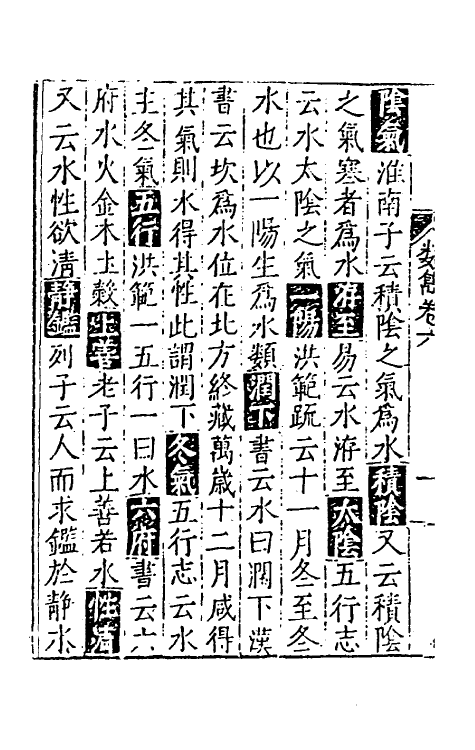 陰氣淮南子云積陰之氣爲水積陰又云積陰
之氣寒者爲水洊至易云水洊至太陰五行志
云水太陰之氣一陽洪範疏云十一月冬至冬
水也以一陽生爲水類潤下書云水曰潤下漢
書云坎爲水位在北方終藏萬歲十二月咸得
其氣則水得其性此謂潤下冬氣五行志云水
主冬氣五行洪範一五行一曰水六府書云六
府水火金木土糓上善老子云上善若水性清
又云水性欲清靜鑑列子云人而求鑑於靜水
卷六
一